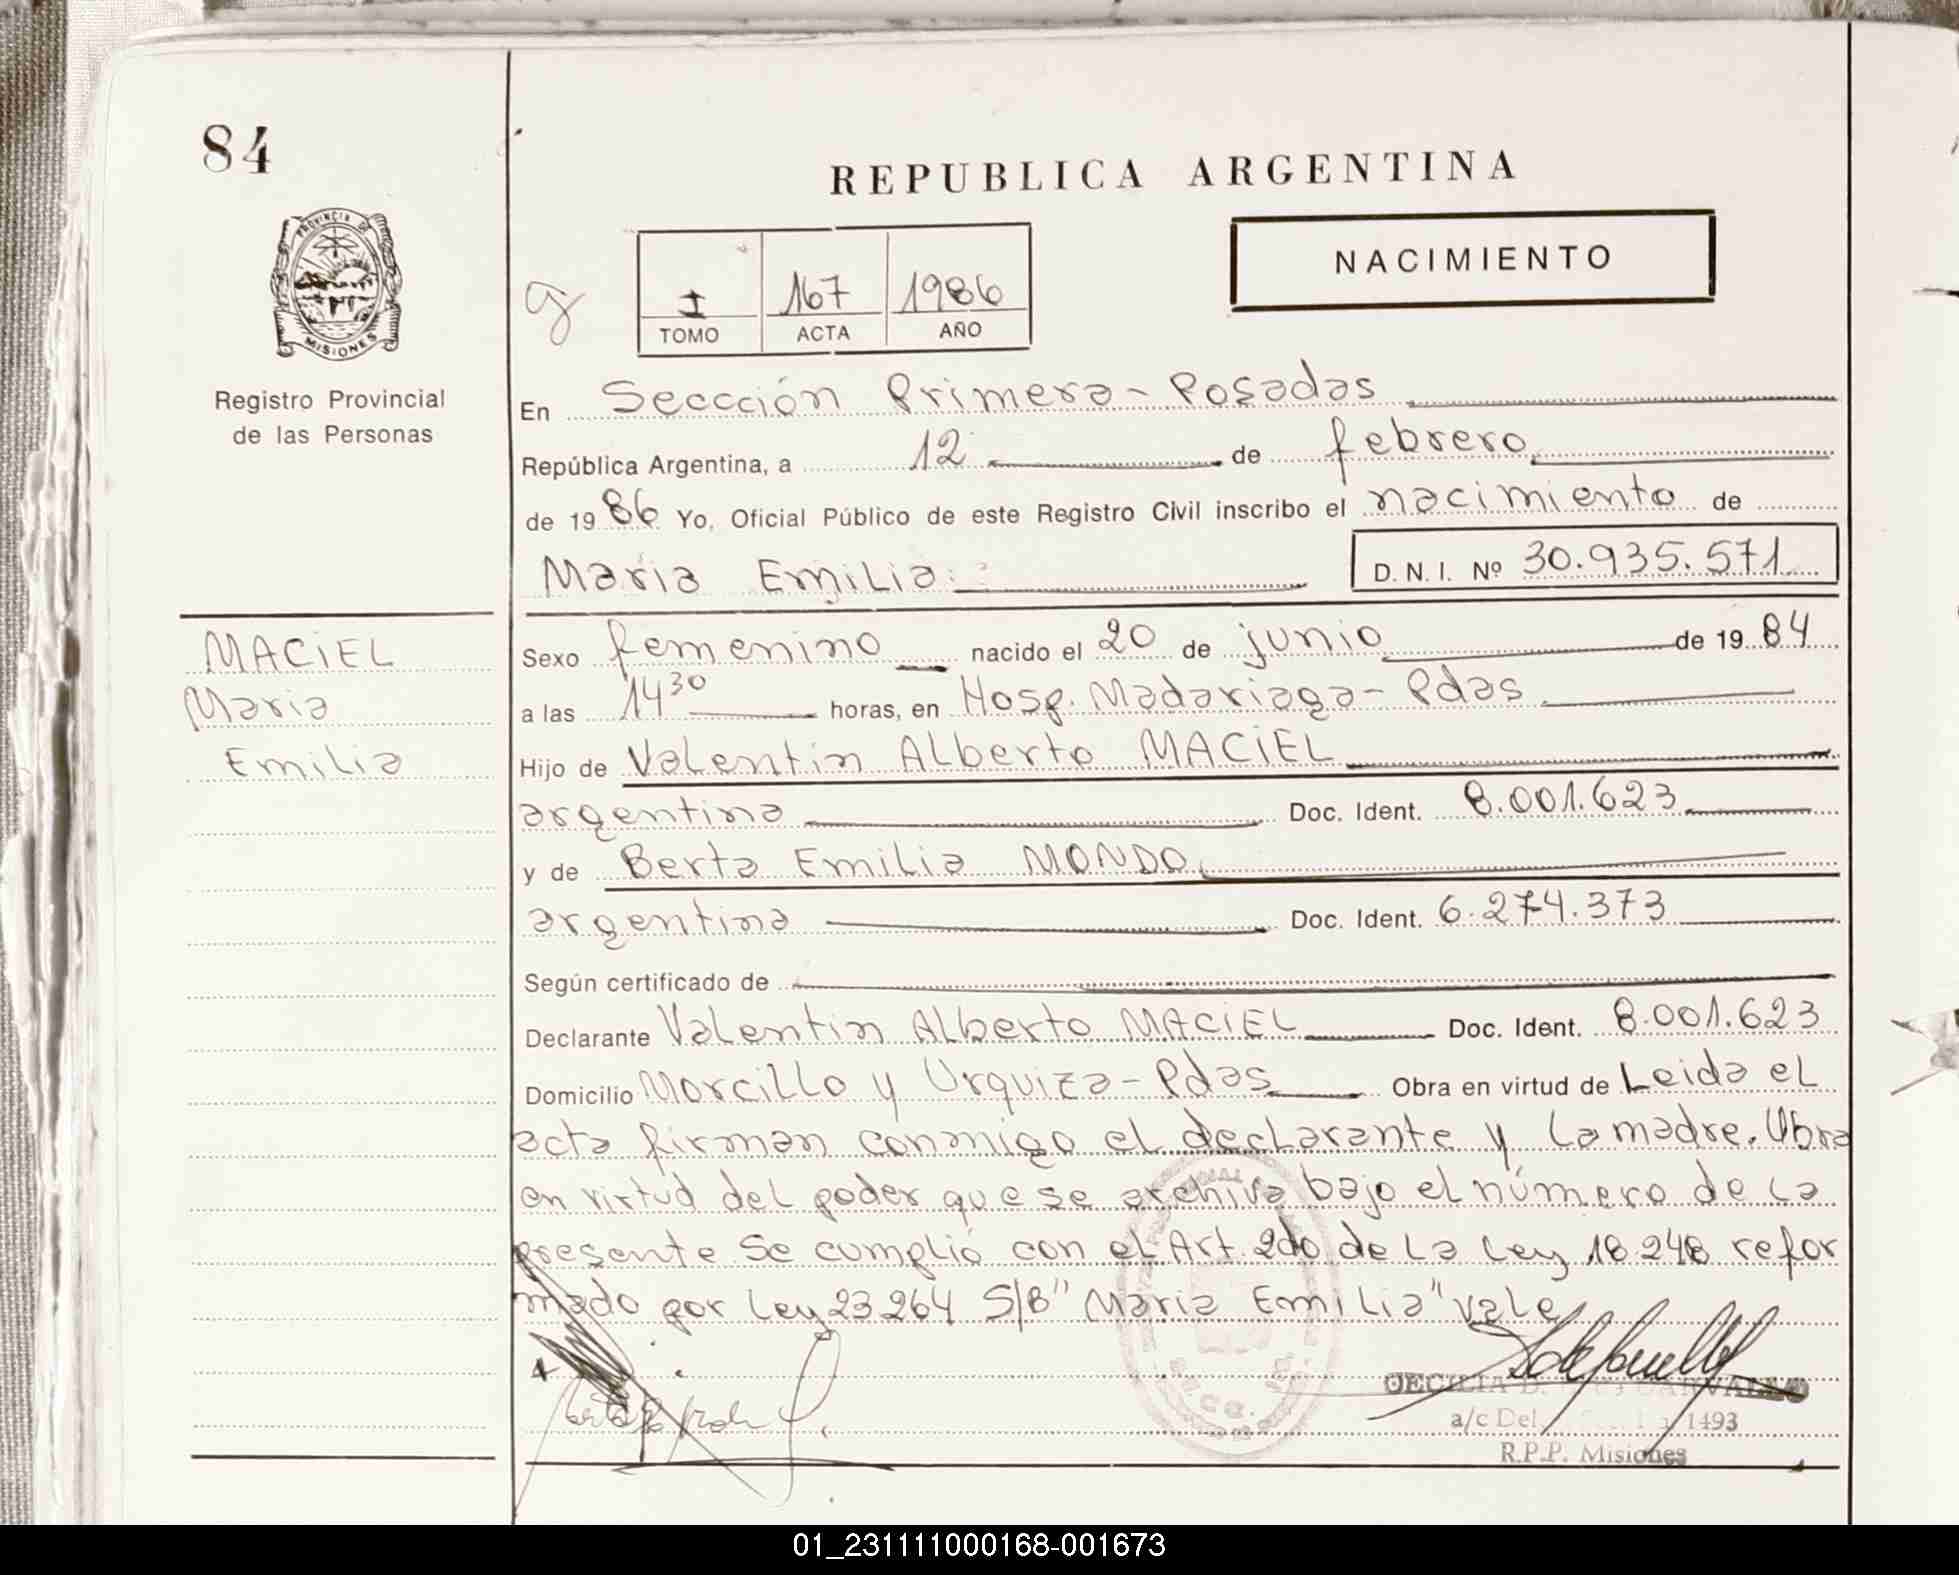 84
REPUBLICA ARGENTINA
PROVINCIA DE
MISIONES
NACIMIENTO
I 167 1986
TOMO ACTA AÑO
Registro Provincial
de las Personas
En Seccción Primera - Posadas
República Argentina, a 12 de febrero
de 19 86 Yo, Oficial Público de este Registro Civil inscribo el nacimiento de
Maria Emilia D. N. I. Nº 30.935.571
MACIEL
Maria
Emilia
Sexo femenino nacido el 20 de junio de 19 84
a las 14 30 horas, en Hosp. Madariaga - Pdas
Hijo de Valentin Alberto MACIEL
argentina Doc. Ident. 8.001.623
y de Berta Emilia MONDO
argentina Doc. Ident. 6.274.373
Según certificado de
Declarante Valentin Alberto MACIEL Doc. Ident. 8.001.623
Domicilio Morcillo y Urquiza - Pdas Obra en virtud de Leida el
acta firman conmigo el declarante y la madre. Obra
en virtud del poder que se archiva bajo el número de la
presente Se cumplió con el Art. 2do de La Ley 18.248 refor
mado por Ley 23264 S/B "Maria Emilia" vale
CECILIA
a/c Del. 1493
R.P.P. Misiones
01_231111000168-001673